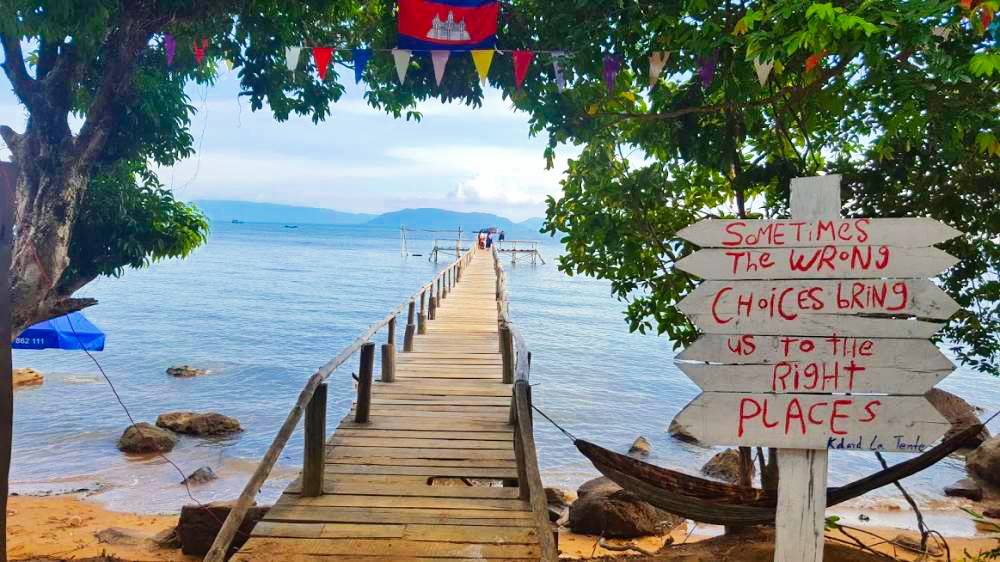 862 111
SOMETIMES
THE WRONG
CHOICES bRING
US TO THE
RIGHT
PLACES
La Tente